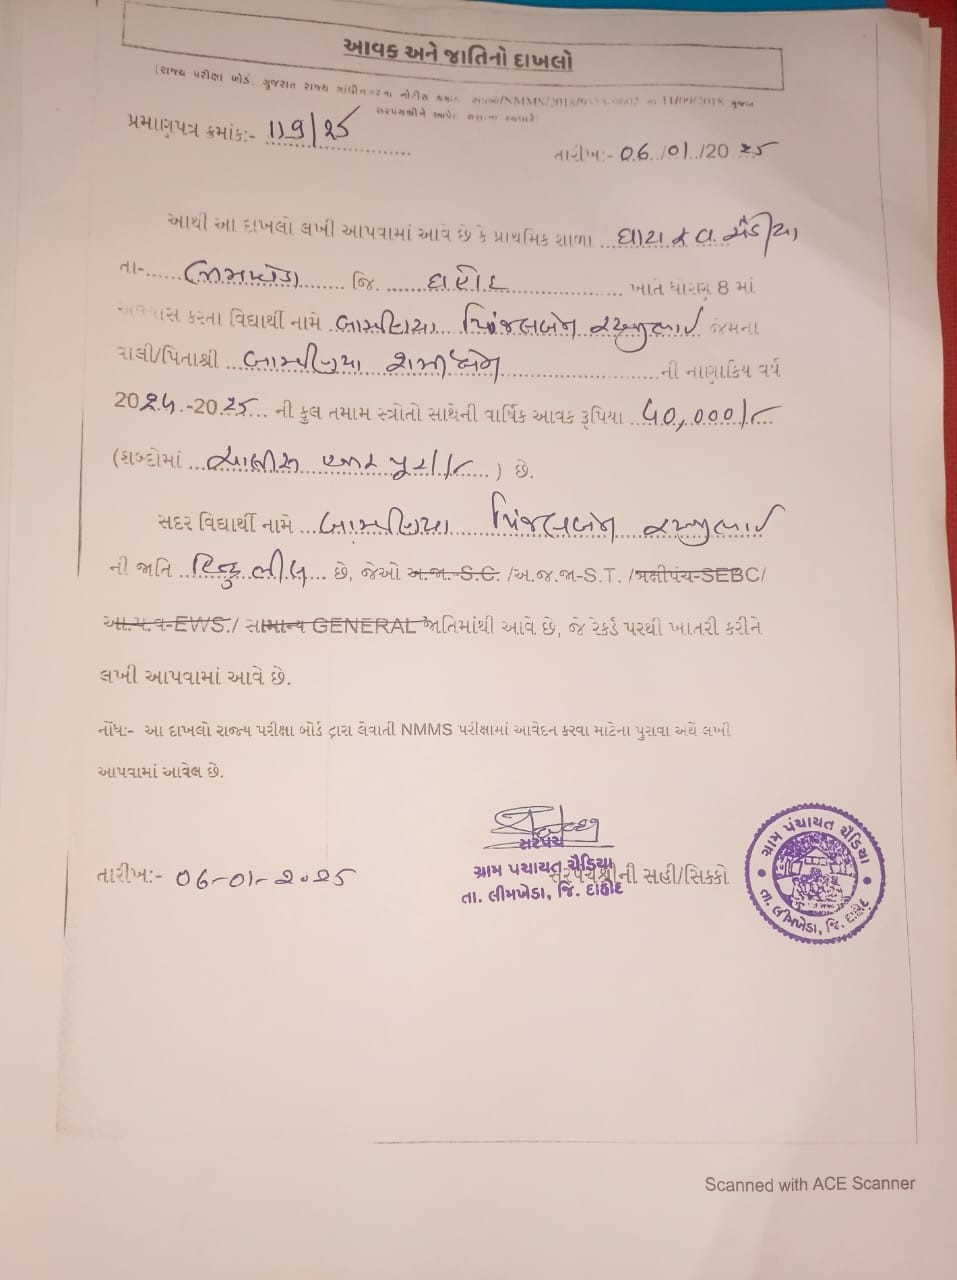 આવક અને જાતિનો દાખલો
(રાજ્ય પરીક્ષા બોર્ડ, ગુજરાત રાજ્ય ગાંધીનગરના /NMMS/2018/ તા 11/09/2018 મુજબ
સરપંચશ્રીને
પ્રમાણપત્ર ક્રમાંક:- 119/25
તારીખ:- 06/01/2025
આથી આ દાખલો લખી આપવામાં આવે છે કે પ્રાથમિક શાળા
તા-...... લીમખેડા જિ. દાહોદ ખાતે ધોરણ 8 માં
અભ્યાસ કરતા વિદ્યાર્થી નામે બામણીયા પિંજલબેન જેમના
વાલી/પિતાશ્રી બામણીયા ની નાણાકિય વર્ષ
2024-2025 ની કુલ તમામ સ્ત્રોતો સાથેની વાર્ષિક આવક રૂપિયા 40,000/-
(શબ્દોમાં ચાલીસ હજાર પુરા/- ) છે.
સદર વિદ્યાર્થી નામે બામણીયા પિંજલબેન
ની જાતિ હિન્દુ ભીલ છે, જેઓ અ.જા.-S.C. /અ.જ.જા-S.T. /બક્ષીપંચ-SEBC/
આ.પ.વ-EWS./ સામાન્ય GENERAL જાતિમાંથી આવે છે, જે રેકર્ડ પરથી ખાતરી કરીને
લખી આપવામાં આવે છે.
નોંધ:- આ દાખલો રાજ્ય પરીક્ષા બોર્ડ દ્વારા લેવાતી NMMS પરીક્ષામાં આવેદન કરવા માટેના પુરાવા અર્થે લખી
આપવામાં આવેલ છે.
સરપંચ
ગ્રામ પંચાયત ચૈડિયા
તા. લીમખેડા, જિ. દાહોદ
તારીખ:- 06-01-2025
સરપંચશ્રીની સહી/સિક્કો
ગ્રામ પંચાયત ચૈડિયા
તા. લીમખેડા, જિ. દાહોદ
Scanned with ACE Scanner